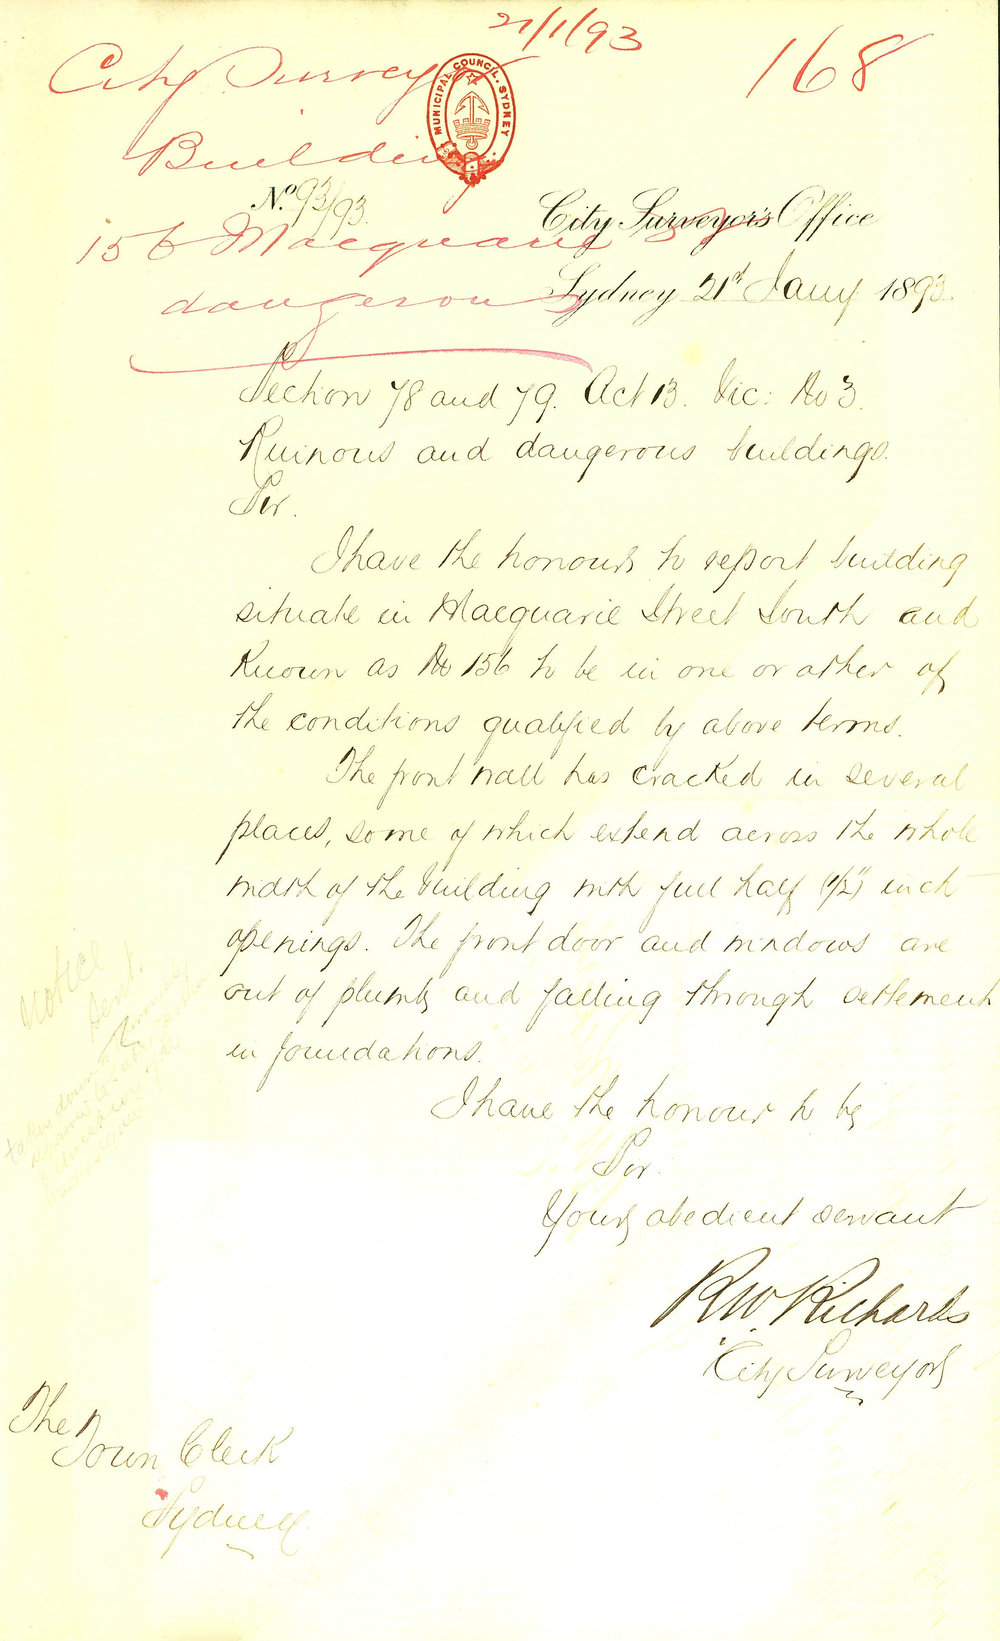 21/1/93
168
City Surveyor
MUNICIPAL COUNCIL. SYDNEY
Building
No. 93/93.
City Surveyor's Office
156 Macquarie St
Sydney 21st Jany 1893.
dangerous
Section 78 and 79. Act 13. Vic: No 3.
Ruinous and dangerous buildings.
Sir.
I have the honour to report building
situate in Macquarie Street South and
Known as No 156 to be in one or other of
the conditions qualified by above terms.
The front wall has cracked in several
places, some of which extend across the whole
width of the building with full half (1/2") inch
openings. The front door and windows are
out of plumb and falling through settlement
in foundations.
I have the honour to be
Sir.
Your obedient servant
R W Richards
City Surveyor
Notice
Sent.
taken down
The
Town Clerk
Sydney